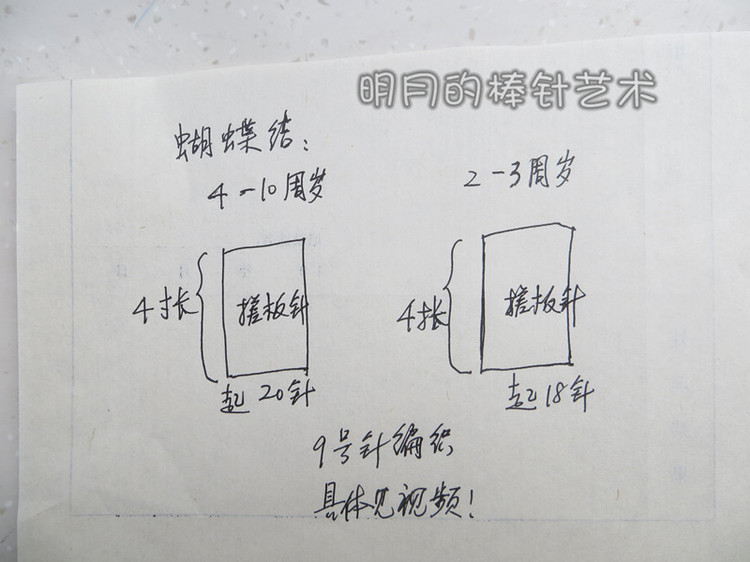 明月的棒针艺术
蝴蝶结：
4-10周岁
2-3周岁
4寸长
搓板针
起20针
4寸长
搓板针
起18针
9号针编织
具体见视频！